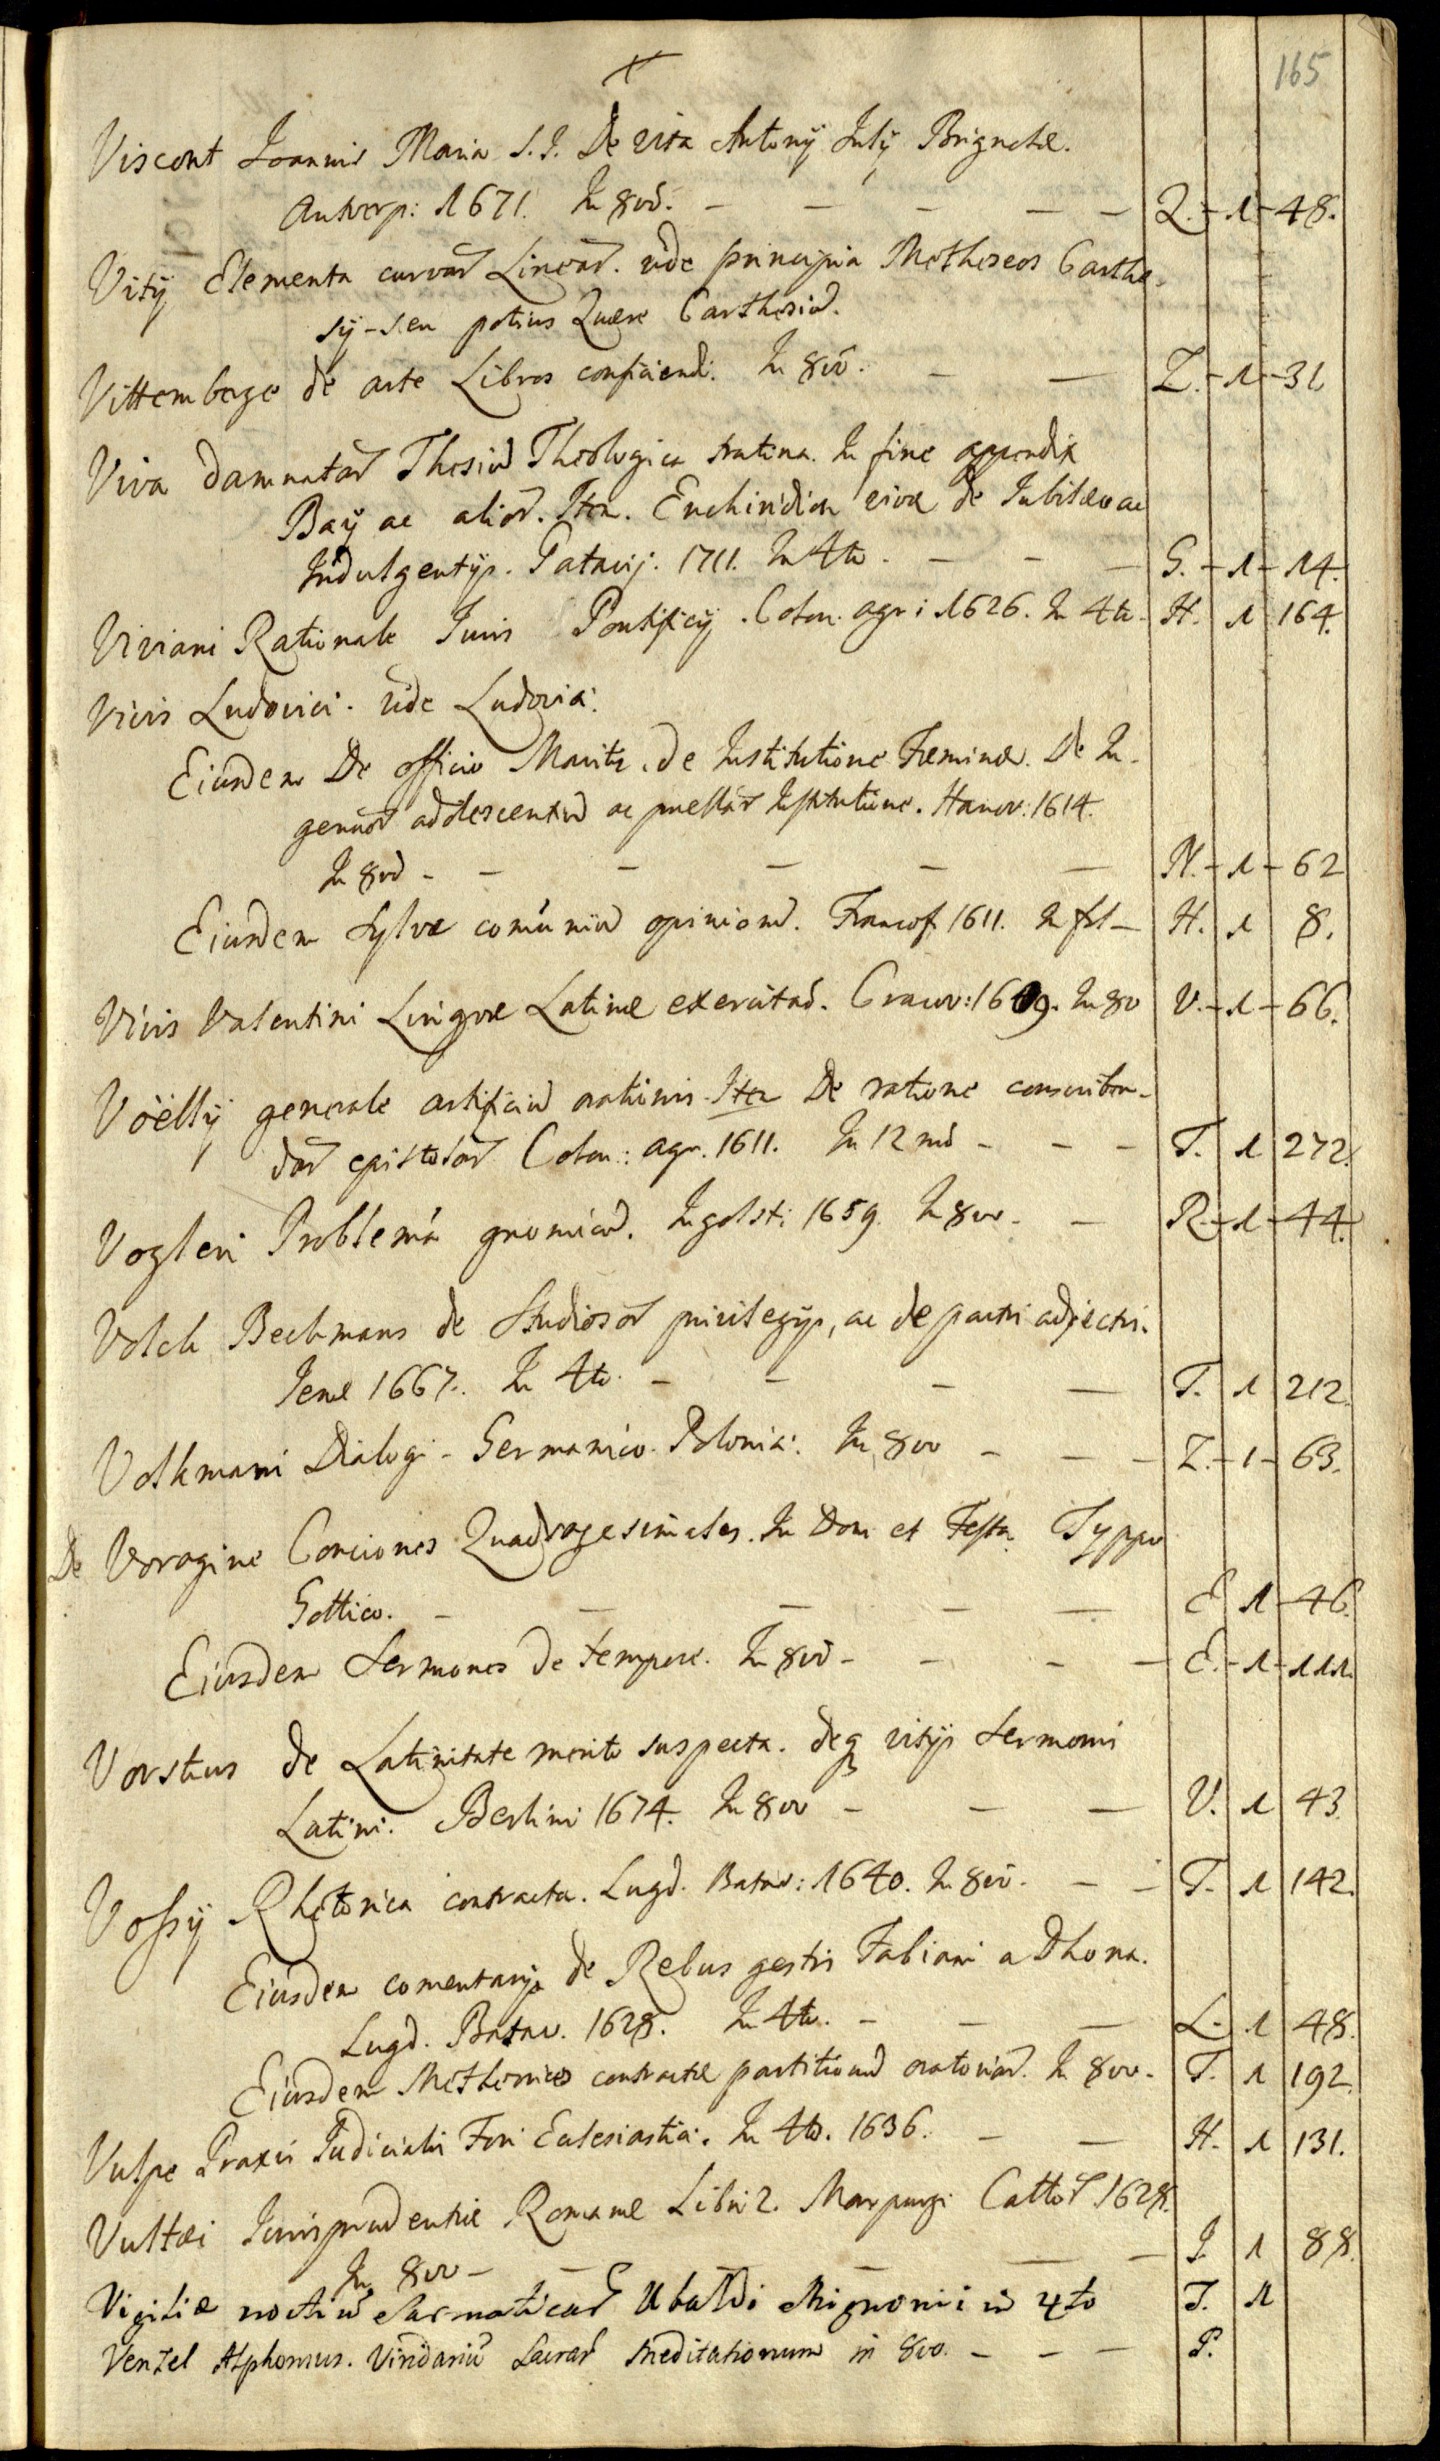 165
Viscont Joannis Maria S.J. De vita Antonij Julij Brignolæ.
Antverp: 1671. In 8vo. — — — — — Q. - 1 - 48.
Vitij Elementa curvar Linear. vide principia Matheseos Carthe-
sij - seu potius Quære Carthesiũ.
Vittemberge de arte Libros conficiendi. In 8vo. — — Z. - 1 - 31
Viva damnatar Thesiũ Theologica trutina. In fine appendix
Baij ac alior. Item. Enchiridion eiusd de Jubilæo ac
Indulgentijs. Patavij. 1711. In 4to. — — — G. - 1 - 14.
Viviani Rationale Juris Pontificij. Colon. agri: 1626. In 4to. H. 1 164.
Vivis Ludovici. vide Ludovici.
Eiusdem De officio Mariti. de Institutione Feminæ. De In-
genuor adolescentiũ ac puellar Institutione. Hanov: 1614.
In 8vo - — — — — — N. - 1 - 62
Eiusdem Sylvæ com̃uniũ opinionũ. Francof. 1611. In fol — H. 1 8.
Vivis Valentini Linguæ Latinæ exercitaõ. Cracov: 1609. In 8o V. - 1 - 66.
Voëllij generale artificiũ orationis. Item De ratione conscriben-
dar epistolar Colon: agr. 1611. In 12mo - — — T. 1 272.
Vogleri Problema gnomicũ. Ingolst: 1659. In 8vo. — R. - 1 - 44.
Volck Beckmans de Studiosor privilegijs, ac de pactis adjectis.
Jenæ 1667. In 4to. — — — — T. 1 212.
Volkmani Dialogi - Germanico. Polonici. In 8vo — — — Z. - 1 - 63.
De Voragine Conciones Quadragesimales. In Dom et Festa. Typpo
Gottico. — — — — — E 1 - 46.
Eiusdem Sermones de tempore. In 8vo - — — — E. - 1 - 111.
Vorstius de Latinitate merito suspecta. deq vitijs Sermonis
Latini. Berlini 1674. In 8vo — — — V. 1 43.
Vossij Rhetorica contracta. Lugd. Batav: 1640. In 8vo. — — T. 1 142.
Eiusdem comentarij de Rebus gestis Fabiani a Dhona.
Lugd. Batav. 1628. In 4to. — — — L. 1 48.
Eiusdem Rhetorices contractæ partitionũ oratoriar. In 8vo. T. 1 192.
Vulpe Praxis Judicialis Fori Eclesiastici. In 4to. 1636. — — H. 1 131.
Vulteii Jurisprudentiæ Romanæ Libri 2. Marpurgi Cattor 1628.
In 8vo — — — — — J 1 88.
Vigiliæ noctiũ Sarmaticar Ubaldi Mignonii in 4to T. 1
Venzel Alphonsus. Viridariũ Sacrar Meditationum in 8vo. — — — P.